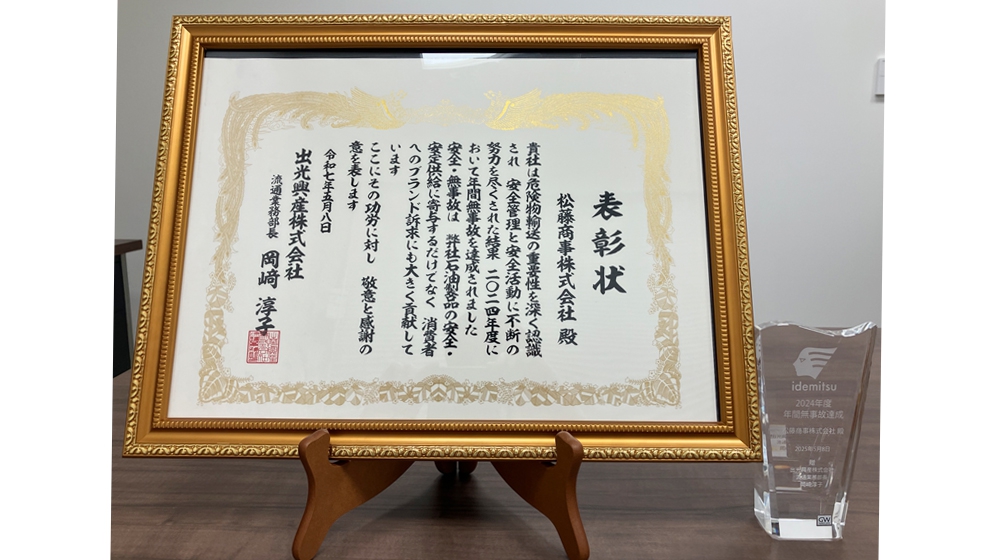 表彰状
松藤商事株式会社 殿
貴社は危険物輸送の重要性を深く認識
され 安全管理と安全活動に不断の
努力を尽くされた結果 二〇二四年度に
おいて年間無事故を達成されました
安全・無事故は 弊社石油製品の安全・
安定供給に寄与するだけでなく 消費者
へのブランド訴求にも大きく貢献して
います
ここにその功労に対し 敬意と感謝の
意を表します
令和七年五月八日
出光興産株式会社
流通業務部長 岡﨑 淳子
idemitsu
2024年度
年間無事故達成
松藤商事株式会社 殿
2025年5月8日
出光興産株式会社
流通業務部長
岡﨑淳子